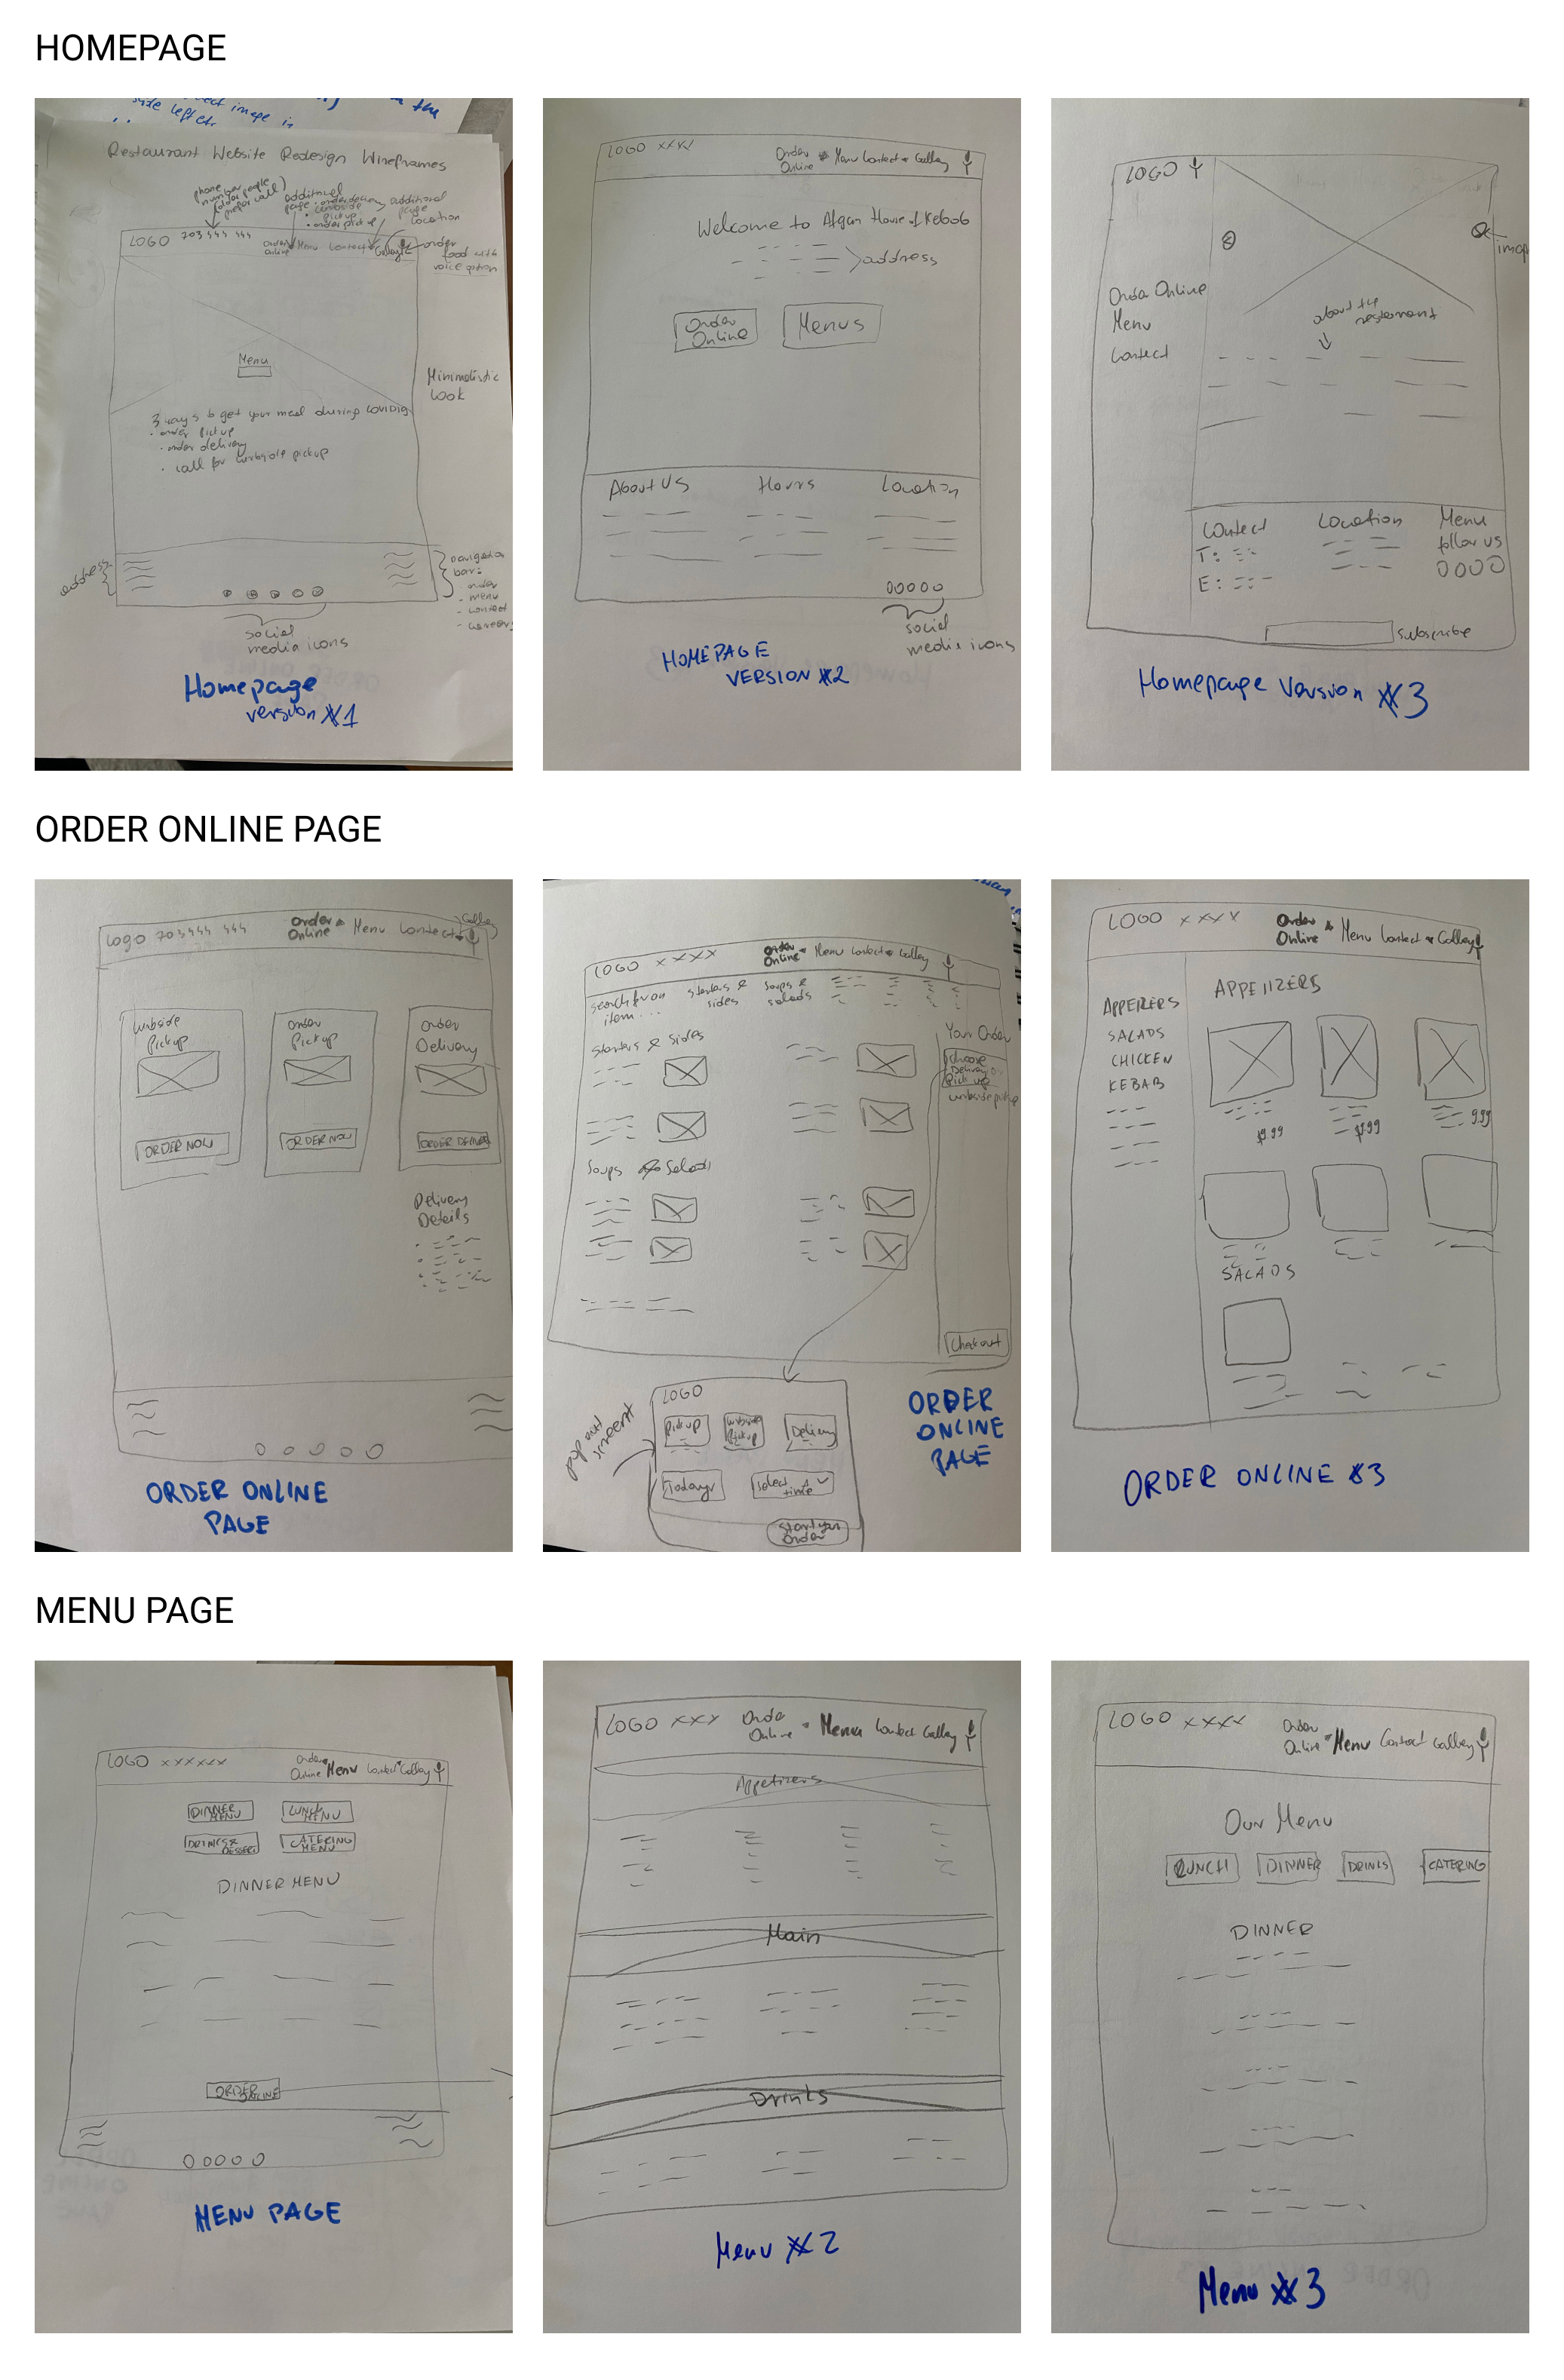 HOMEPAGE
image in
the
Restaurant Website Redesign Wireframes
phone
additional
additional
page
location
LOGO 703 444 444
Order
Online
Menu
Contact
Gallery
order
food with
voice option
Menu
Minimalistic
Look
3 ways to get your meal during
order pickup
order delivery
call for curbside pickup
address
navigation
bar:
order
menu
contact
careers
social
media icons
Homepage
version #1
LOGO XXXX
Order
Online
Menu Contact Gallery
Welcome to Afgan House of Kebob
address
Order
Online
Menus
About Us
Hours
Location
social
media icons
HOMEPAGE
VERSION #2
LOGO
Order Online
Menu
Contact
about the
restaurant
Contact
T:
E:
Location
Menu
follow us
subscribe
Homepage Version #3
ORDER ONLINE PAGE
Logo 703 444 444
Order
Online
Menu Contact
Gallery
Curbside
Pickup
ORDER NOW
Order
Pickup
ORDER NOW
Order
Delivery
Delivery
Details
ORDER ONLINE
PAGE
LOGO XXXX
Order
Online
Menu Contact Gallery
Search for an
item...
Starters &
sides
Soups &
salads
Starters & Sides
Soups & Salads
Your Order
Choose
Delivery
Pick up
Checkout
pop out
screen
LOGO
Pickup
Curbside
Pickup
Delivery
Today
Select
time
Start your
Order
ORDER
ONLINE
PAGE
LOGO XXXX
Order
Online
Menu Contact Gallery
SALADS
CHICKEN
KEBAB
9.99
SALADS
ORDER ONLINE #3
MENU PAGE
LOGO XXXXXX
Order
Online
Menu Contact Gallery
DINNER
MENU
LUNCH
MENU
CATERING
MENU
DINNER MENU
ORDER
ONLINE
MENU PAGE
LOGO XXX
Order
Online
Menu Contact Gallery
Appetizers
Main
Drinks
Menu #2
LOGO XXXX
Order
Online
Menu Contact Gallery
Our Menu
LUNCH
DINNER
DRINKS
CATERING
DINNER
Menu #3